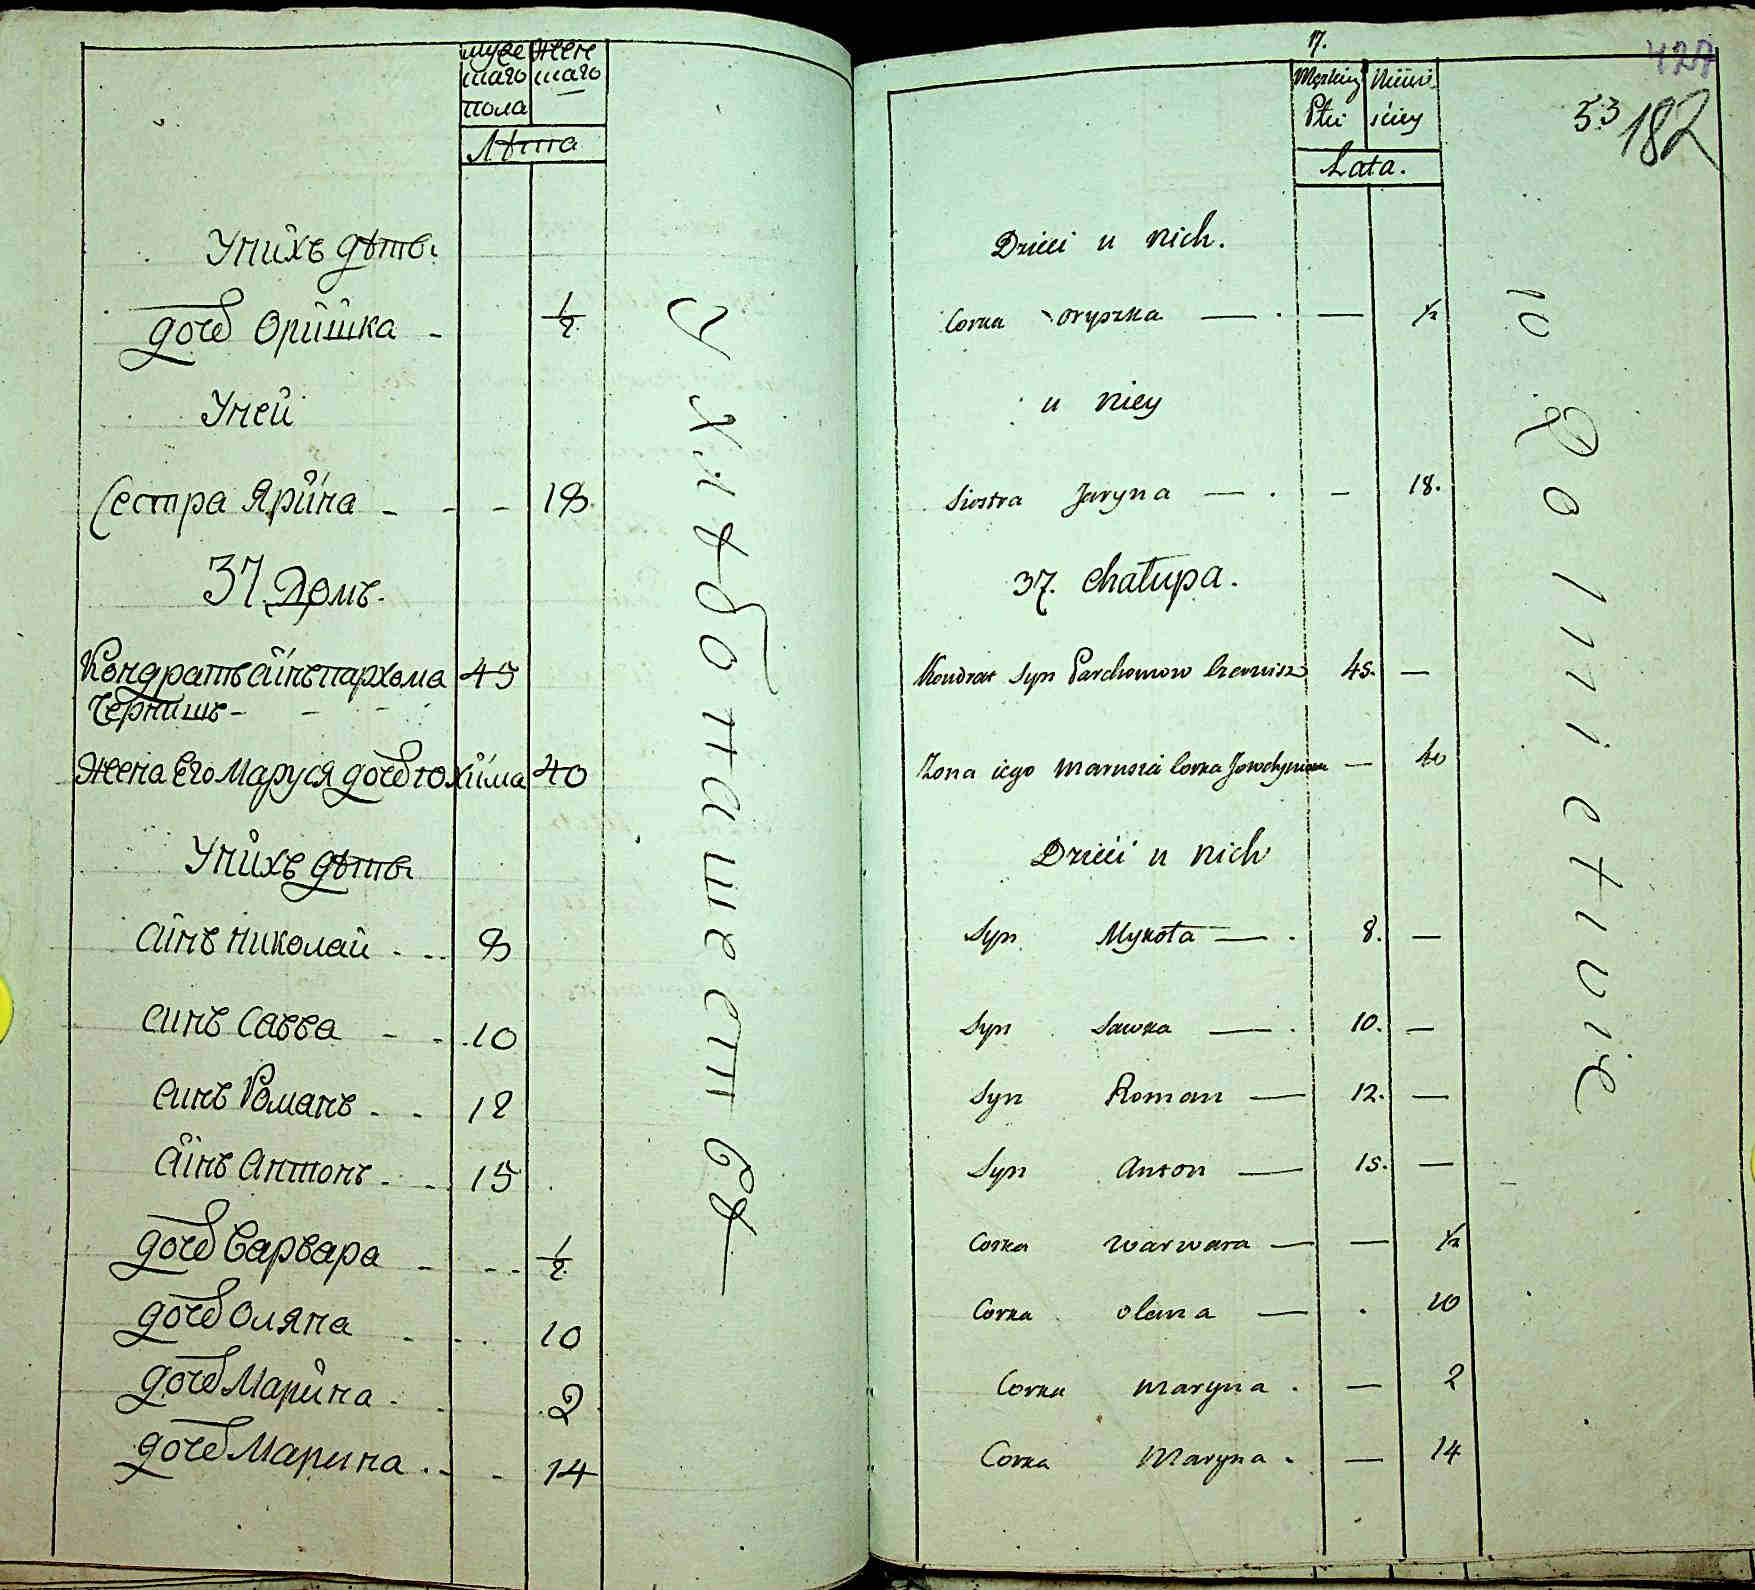 муже жен
скаго скаго
пола
Лѣта
У нихъ дѣти
дочь Оришка - 1/2
У ней
Сестра Ярина - - - 18.
37 Домъ.
Кондратъ синъ пархома 45
Чернишъ - - -
жена Его Маруся дочь юхима 40
У нихъ дѣти
синъ николай - .. 8
синъ Савва - - 10
синъ Романъ - - 12
синъ Антонъ - - 15
дочь Варвара - - - 1/2
дочь Оляна - - - 10
дочь Марина - - 2
дочь Марина - - - 14
У Хлѣбопашествѣ
17.
427
53
182
Męzkiey Niewi-
Płci sciey
Lata.
Dzieci u nich.
Corka Oryszka — — 1/2
u niey
Siostra Jaryna — - 18.
37. Chałupa.
Kondrat Syn Parchomow Czernisz 45. —
Zona iego Marusia Corka Jowchymowa — 40
Dzieci u nich
Syn Mykoła — 8. —
Syn Sawka — 10. —
Syn Roman — 12. —
Syn Anton — 15. —
Corka Warwara — — 1/2
Corka Olana — . 10
Corka Maryna . — 2
Corka Maryna - — 14
w Rolnictwie